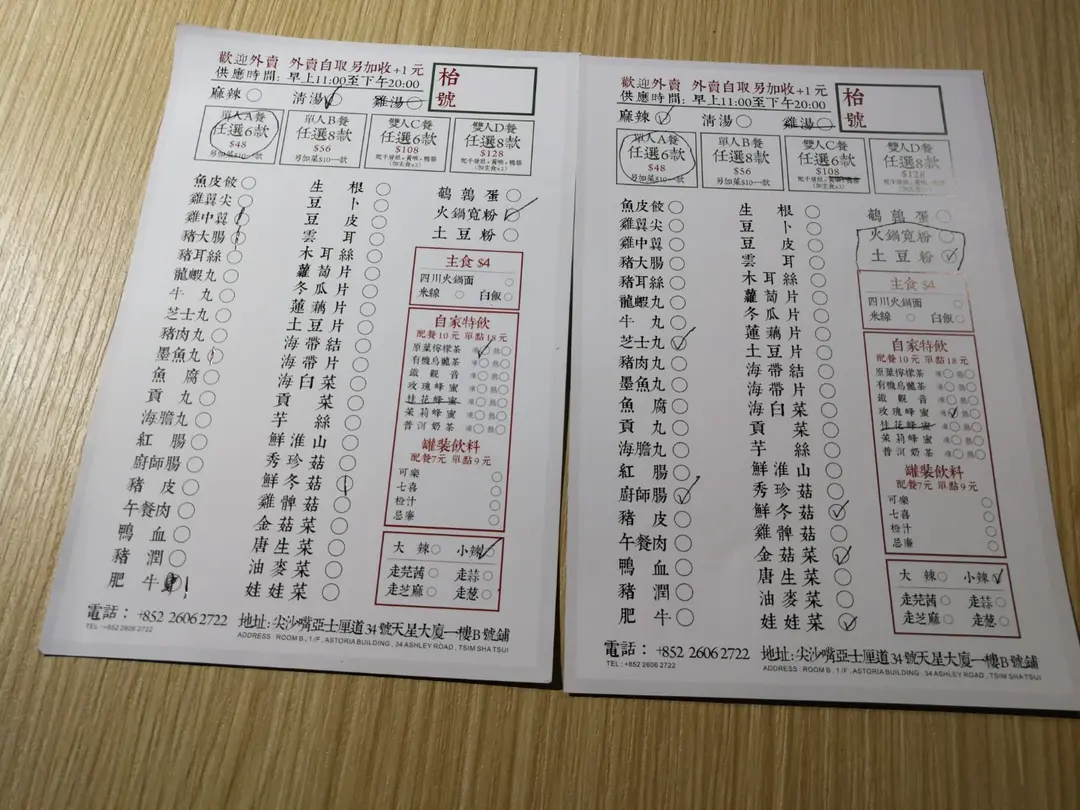 歡迎外賣 外賣自取另加收+1元
供應時間: 早上11:00至下午20:00
枱號
麻辣 清湯 雞湯
單人A餐
任選6款
$48
另加菜$10一款
單人B餐
任選8款
$56
另加菜$10一款
雙人C餐
任選6款
$108
(加主食x2)
雙人D餐
任選8款
$128
(加主食x2)
魚皮餃
雞翼尖
雞中翼
豬大腸
豬耳絲
龍蝦丸
牛丸
芝士丸
豬肉丸
墨魚丸
魚腐
貢丸
海膽丸
紅腸
廚師腸
豬皮
午餐肉
鴨血
豬潤
肥牛
生根
豆卜
豆皮
雲耳
木耳絲
蘿蔔片
冬瓜片
蓮藕片
土豆片
海帶結
海帶片
海白菜
貢菜
芋絲
鮮淮山
秀珍菇
鮮冬菇
雞髀菇
金菇菜
唐生菜
油麥菜
娃娃菜
鵪鶉蛋
火鍋寬粉
土豆粉
主食 $4
四川火鍋面
米線 白飯
自家特飲
配餐10元 單點18元
原葉檸檬茶 凍 熱
有機烏龍茶 凍 熱
鐵觀音 凍 熱
玫瑰蜂蜜 凍 熱
桂花蜂蜜 凍 熱
茉莉蜂蜜 凍 熱
普洱奶茶 凍 熱
罐裝飲料
配餐7元 單點9元
可樂
七喜
橙汁
忌廉
大辣 小辣
走芫茜 走蒜
走芝麻 走蔥
電話: +852 2606 2722 地址:尖沙嘴亞士厘道34號天星大廈一樓B號鋪
TEL :+852 2606 2722 ADDRESS : ROOM B., 1/F., ASTORIA BUILDING , 34 ASHLEY ROAD , TSIM SHA TSUI
歡迎外賣 外賣自取另加收+1元
供應時間: 早上11:00至下午20:00
枱號
麻辣 清湯 雞湯
單人A餐
任選6款
$48
另加菜$10一款
單人B餐
任選8款
$56
另加菜$10一款
雙人C餐
任選6款
$108
(加主食x2)
雙人D餐
任選8款
$128
(加主食x2)
魚皮餃
雞翼尖
雞中翼
豬大腸
豬耳絲
龍蝦丸
牛丸
芝士丸
豬肉丸
墨魚丸
魚腐
貢丸
海膽丸
紅腸
廚師腸
豬皮
午餐肉
鴨血
豬潤
肥牛
生根
豆卜
豆皮
雲耳
木耳絲
蘿蔔片
冬瓜片
蓮藕片
土豆片
海帶結
海帶片
海白菜
貢菜
芋絲
鮮淮山
秀珍菇
鮮冬菇
雞髀菇
金菇菜
唐生菜
油麥菜
娃娃菜
鵪鶉蛋
火鍋寬粉
土豆粉
主食 $4
四川火鍋面
米線 白飯
自家特飲
配餐10元 單點18元
原葉檸檬茶 凍 熱
有機烏龍茶 凍 熱
鐵觀音 凍 熱
玫瑰蜂蜜 凍 熱
桂花蜂蜜 凍 熱
茉莉蜂蜜 凍 熱
普洱奶茶 凍 熱
罐裝飲料
配餐7元 單點9元
可樂
七喜
橙汁
忌廉
大辣 小辣
走芫茜 走蒜
走芝麻 走蔥
電話: +852 2606 2722 地址:尖沙嘴亞士厘道34號天星大廈一樓B號鋪
TEL :+852 2606 2722 ADDRESS : ROOM B., 1/F., ASTORIA BUILDING , 34 ASHLEY ROAD , TSIM SHA TSUI